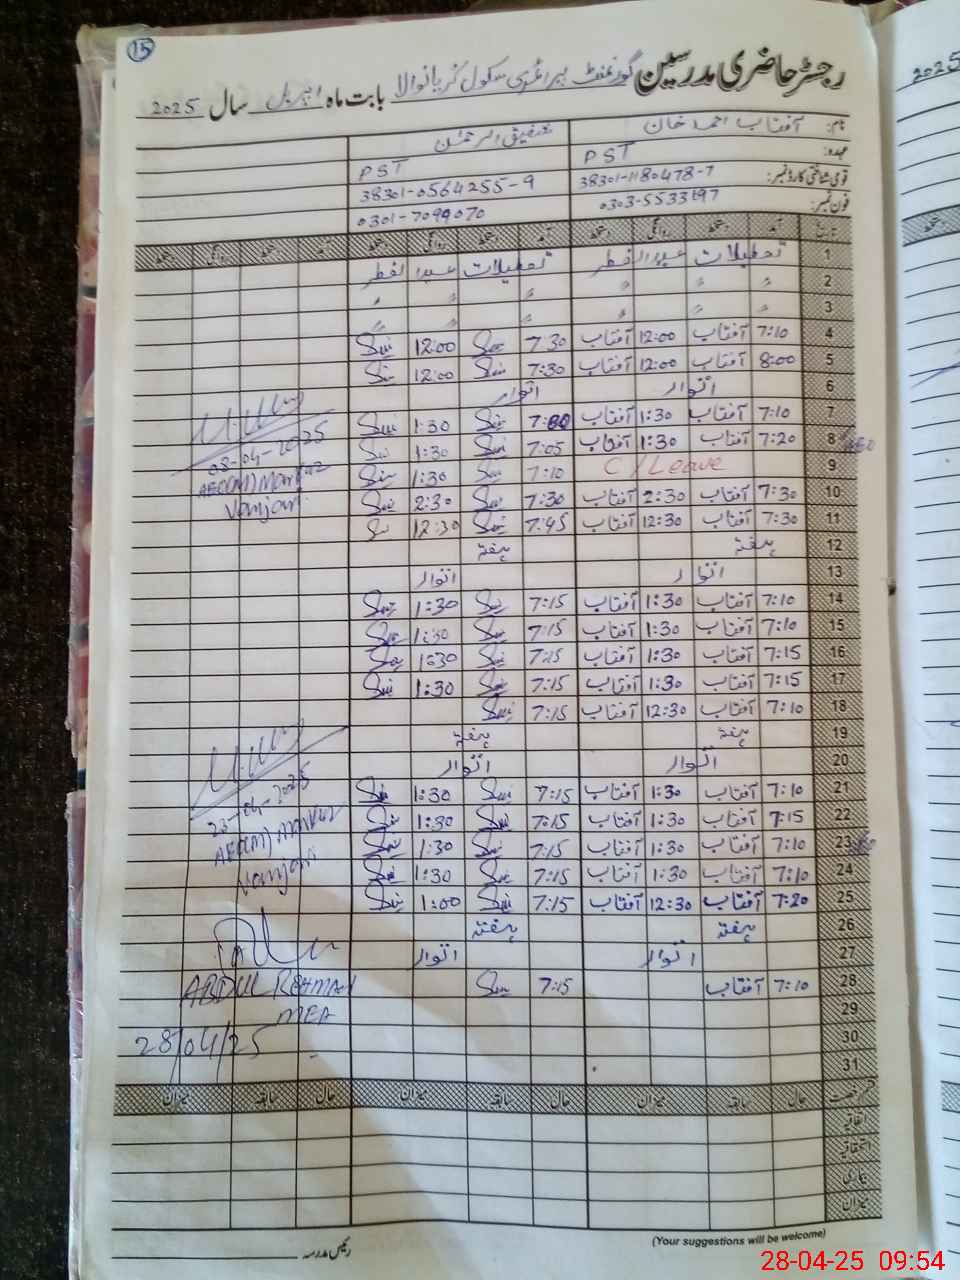 15
رجسٹر حاضری مدرسین گورنمنٹ پرائمری سکول کریانوالا بابت ماہ اپریل سال 2025
نام: آفتاب احمد خان شفیق الرحمٰن
عہدہ: PST PST
قومی شناختی کارڈ نمبر: 38301-1180478-7 38301-0564255-9
فون نمبر: 0303-5533197 0301-7099070
تاریخ آمد دستخط روانگی دستخط آمد دستخط روانگی دستخط آمد دستخط روانگی دستخط
1 تعطیلات عید الفطر تعطیلات عید الفطر
2 〃 〃 〃 〃 〃 〃
3 〃 〃 〃 〃 〃 〃
4 7:10 آفتاب 12:00 آفتاب 7:30 12:00
5 8:00 آفتاب 12:00 آفتاب 7:30 12:00
6 اتوار اتوار
7 7:10 آفتاب 1:30 آفتاب 7:00 1:30
8 7:20 آفتاب 1:30 آفتاب 7:05 1:30
08-04-2025
9 C/Leave 7:10 1:30
AEO(M) Markaz
10 7:30 آفتاب 2:30 آفتاب 7:30 2:30
Vanjari
11 7:30 آفتاب 12:30 آفتاب 7:45 12:30
12 ہفتہ ہفتہ
13 اتوار اتوار
14 7:10 آفتاب 1:30 آفتاب 7:15 1:30
15 7:10 آفتاب 1:30 آفتاب 7:15 1:30
16 7:15 آفتاب 1:30 آفتاب 7:15 1:30
17 7:15 آفتاب 1:30 آفتاب 7:15 1:30
18 7:10 آفتاب 12:30 آفتاب 7:15
19 ہفتہ ہفتہ
20 اتوار اتوار
21 7:10 آفتاب 1:30 آفتاب 7:15 1:30
22 7:15 آفتاب 1:30 آفتاب 7:15 1:30
23-04-2025
23 7:10 آفتاب 1:30 آفتاب 7:15 1:30
AEO(M) Markaz
24 7:10 آفتاب 1:30 آفتاب 7:15 1:30
Vanjari
25 7:20 آفتاب 12:30 آفتاب 7:15 1:00
26 ہفتہ ہفتہ
27 اتوار اتوار
28 7:10 آفتاب 7:15
ABDUL REHMAN
29
MEA
30
28/04/25
31
قسم رخصت حال سابقہ میزان حال سابقہ میزان حال سابقہ میزان
اتفاقیہ
استحقاقیہ
بیماری
میزان
رئیس مدرسہ
(Your suggestions will be welcome)
2025
28-04-25 09:54